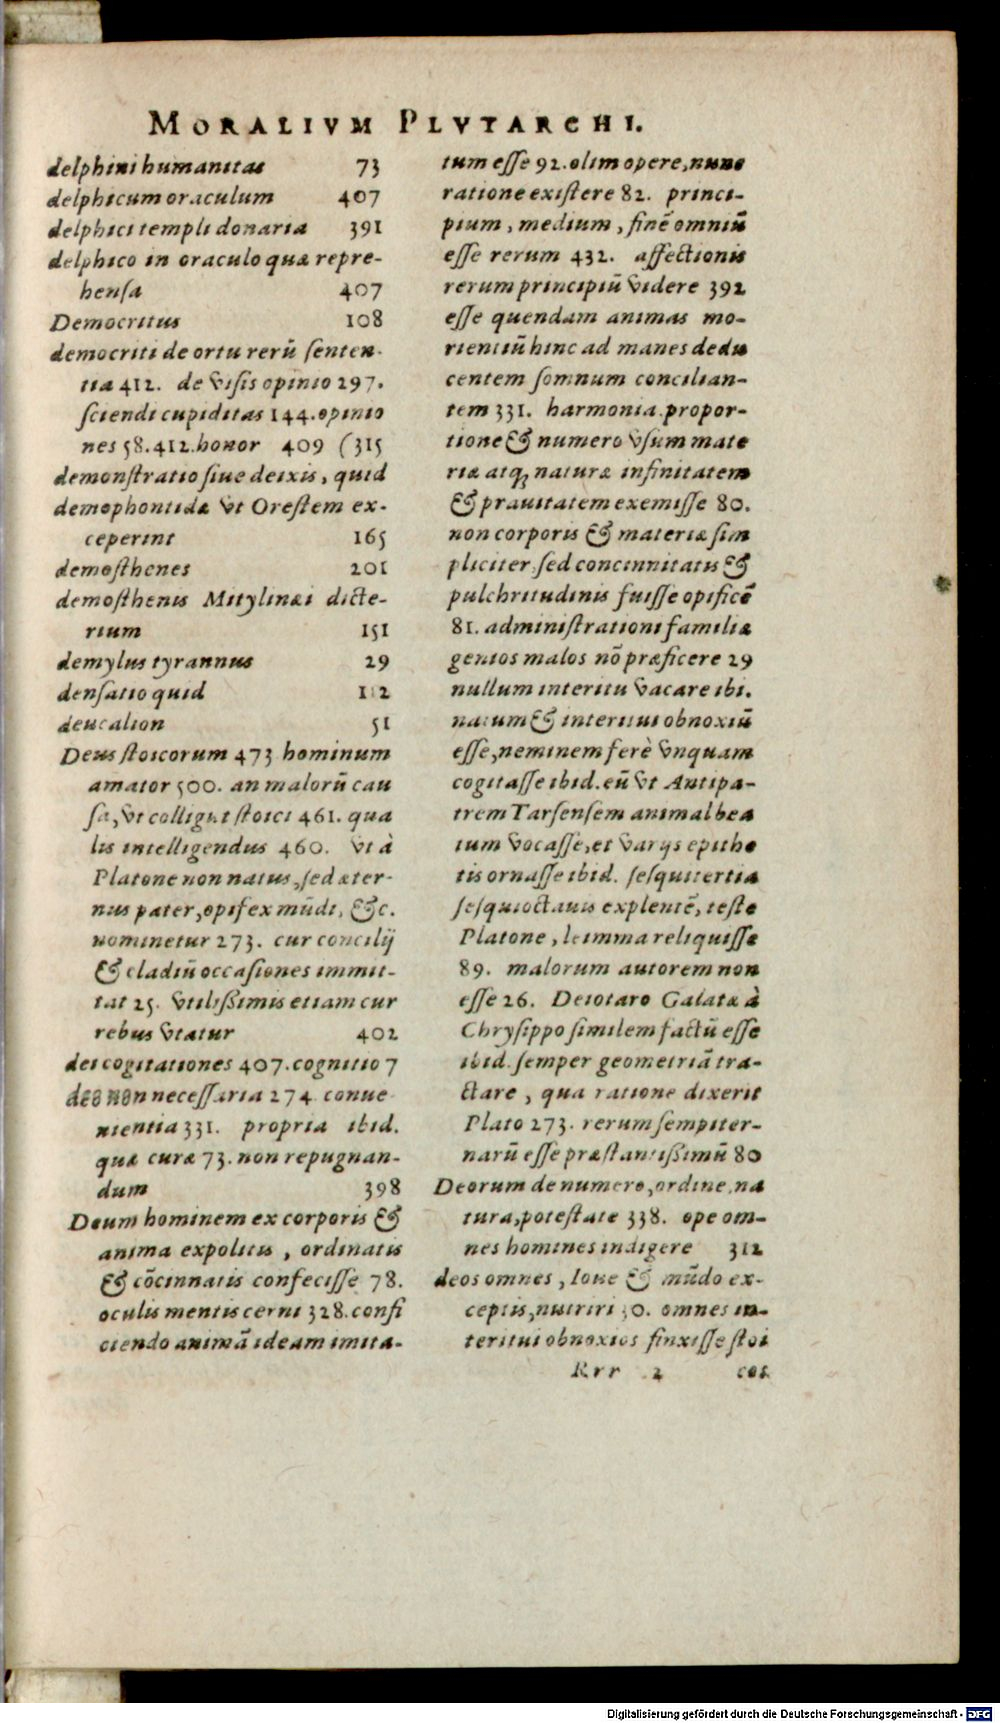 MORALIVM PLVTARCHI.
delphini humanitas 73
delphicum oraculum 407
delphici templi donaria 391
delphico in oraculo quæ repre-
hensa 407
Democritus 108
democriti de ortu rerū senten-
tia 412. de visis opinio 297.
sciendi cupiditas 144. opinio
nes 58. 412. honor 409 (315
demonstratio siue deixis, quid
demophontidæ vt Orestem ex-
ceperint 165
demosthenes 201
demosthenis Mitylinæi dicte-
rium 151
demylus tyrannus 29
densatio quid 112
deucalion 51
Deus stoicorum 473 hominum
amator 500. an malorū cau
sa, vt colligūt stoici 461. qua
lis intelligendus 460. vt à
Platone non natus, sed æter-
nus pater, opifex mūdi, &c.
nominetur 273. cur concilij
& cladiū occasiones immit-
tat 25. vtilißimis etiam cur
rebus vtatur 402
dei cogitationes 407. cognitio 7
deo non necessaria 274 conue
nientia 331. propria ibid.
quæ curæ 73. non repugnan-
dum 398
Deum hominem ex corporis &
anima expolitis, ordinatis
& cōcinnatis confecisse 78.
oculis mentis cerni 328. confi
ciendo animā ideam imita-
tum esse 92. olim opere, nunc
ratione existere 82. princi-
pium, medium, finē omniū
esse rerum 432. affectionis
rerum principiū videre 392
esse quendam animas mo-
rientiū hinc ad manes dedu
centem somnum concilian-
tem 331. harmonia. propor-
tione & numero vsum mate
riæ atq; naturæ infinitatem
& prauitatem exemisse 80.
non corporis & materiæ sim
pliciter sed concinnitatis &
pulchritudinis fuisse opificē
81. administrationi familiæ
gentos malos nō præficere 29
nullum interitu vacare ibi.
natum & interitui obnoxiū
esse, neminem ferè vnquam
cogitasse ibid. eū vt Antipa-
trem Tarsensem animal bea
tum vocasse, et varijs epithe
tis ornasse ibid. sesquitertia
sesquioctauis explentē, teste
Platone, leimma reliquisse
89. malorum autorem non
esse 26. Deiotaro Galatæ à
Chrysippo similem factū esse
ibid. semper geometriā tra-
ctare, qua ratione dixerit
Plato 273. rerum sempiter-
narū esse præstantissimū 80
Deorum de numero, ordine, na
tura, potestate 338. ope om-
nes homines indigere 312
deos omnes, Ioue & mūdo ex-
ceptis, nutriri 30. omnes in-
teritui obnoxios finxisse stoi
Rrr 2 cos
Digitalisierung gefördert durch die Deutsche Forschungsgemeinschaft - DFG